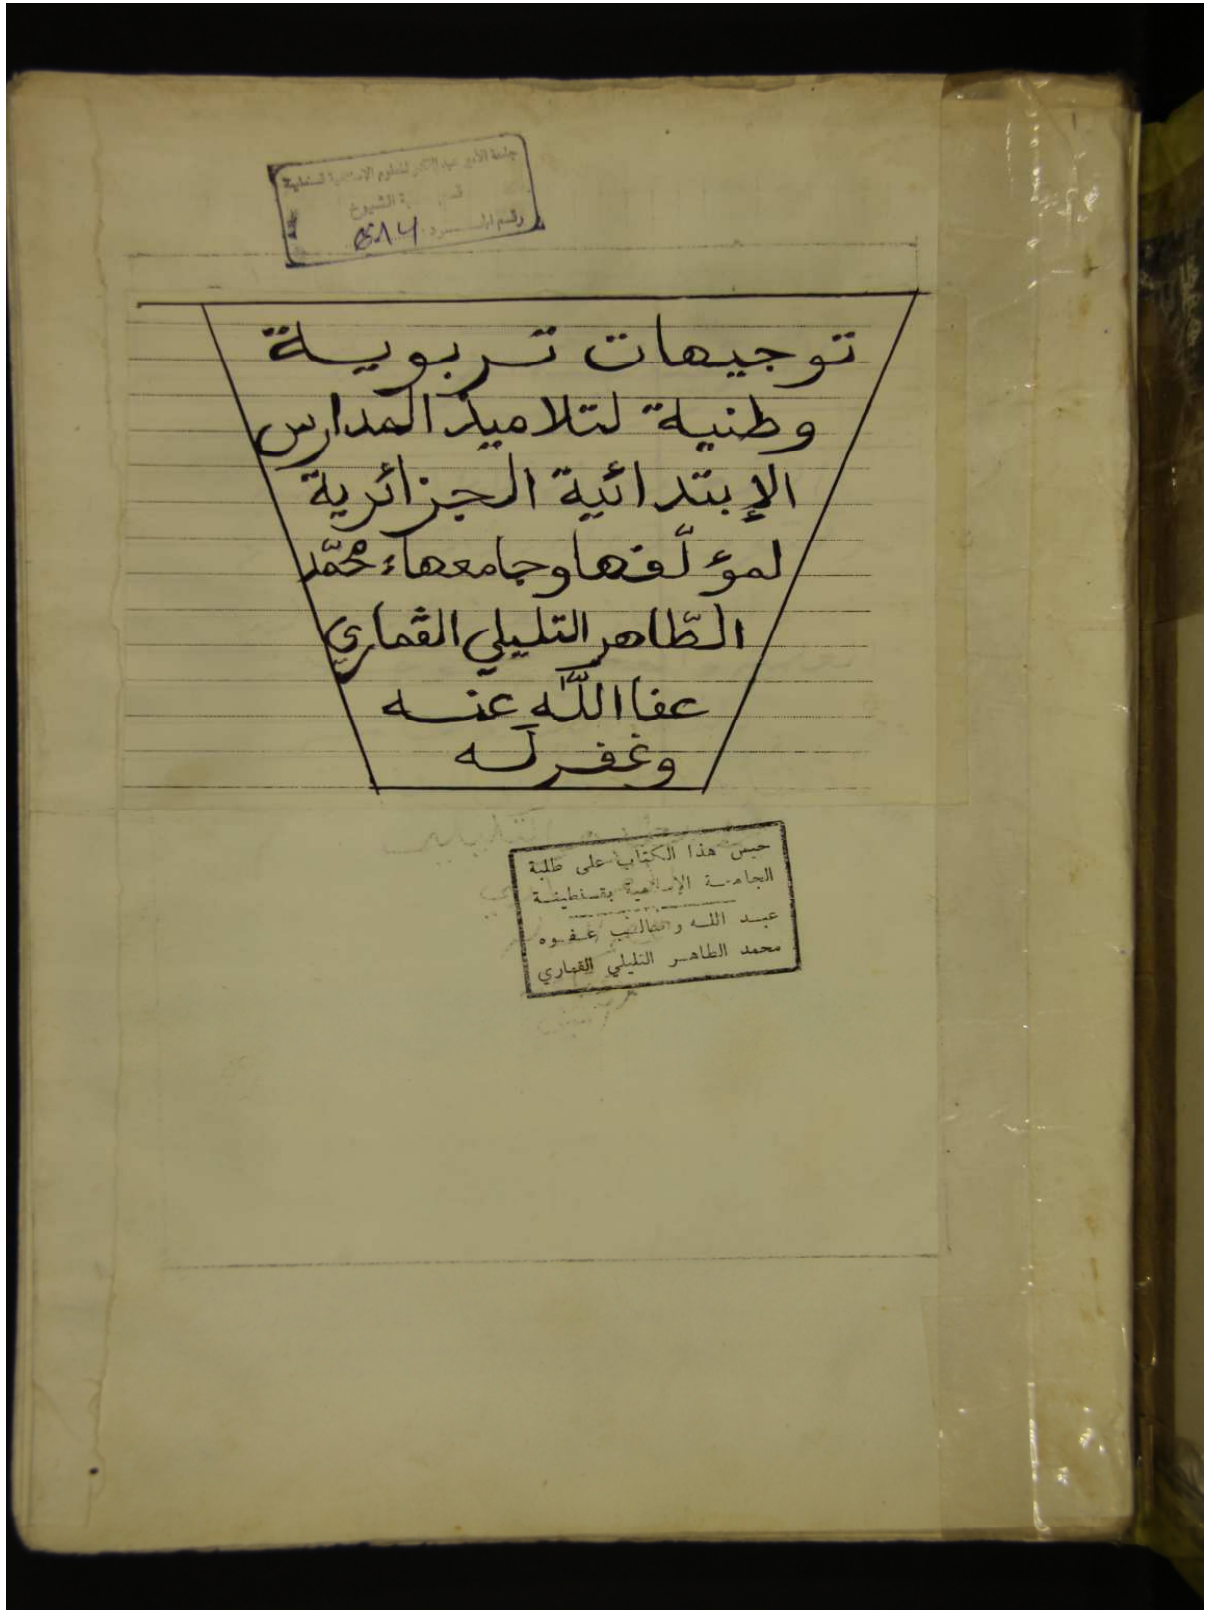 جامعة الأمير عبد القادر للعلوم الاسلامية قسنطينة
الشيوخ
رقم الجـــرد:
توجيهات تربوية
وطنية لتلاميذ المدارس
الإبتدائية الجزائرية
لمؤلّفها وجامعها: محمّد
الطّاهر التليلي الڤماري
عفا اللّه عنه
وغفر له
حبس هذا الكتاب على طلبة
الجامعة الإسلامية بقسنطينة
عبد الله وطالب عفوه
محمد الطاهر التليلي القماري